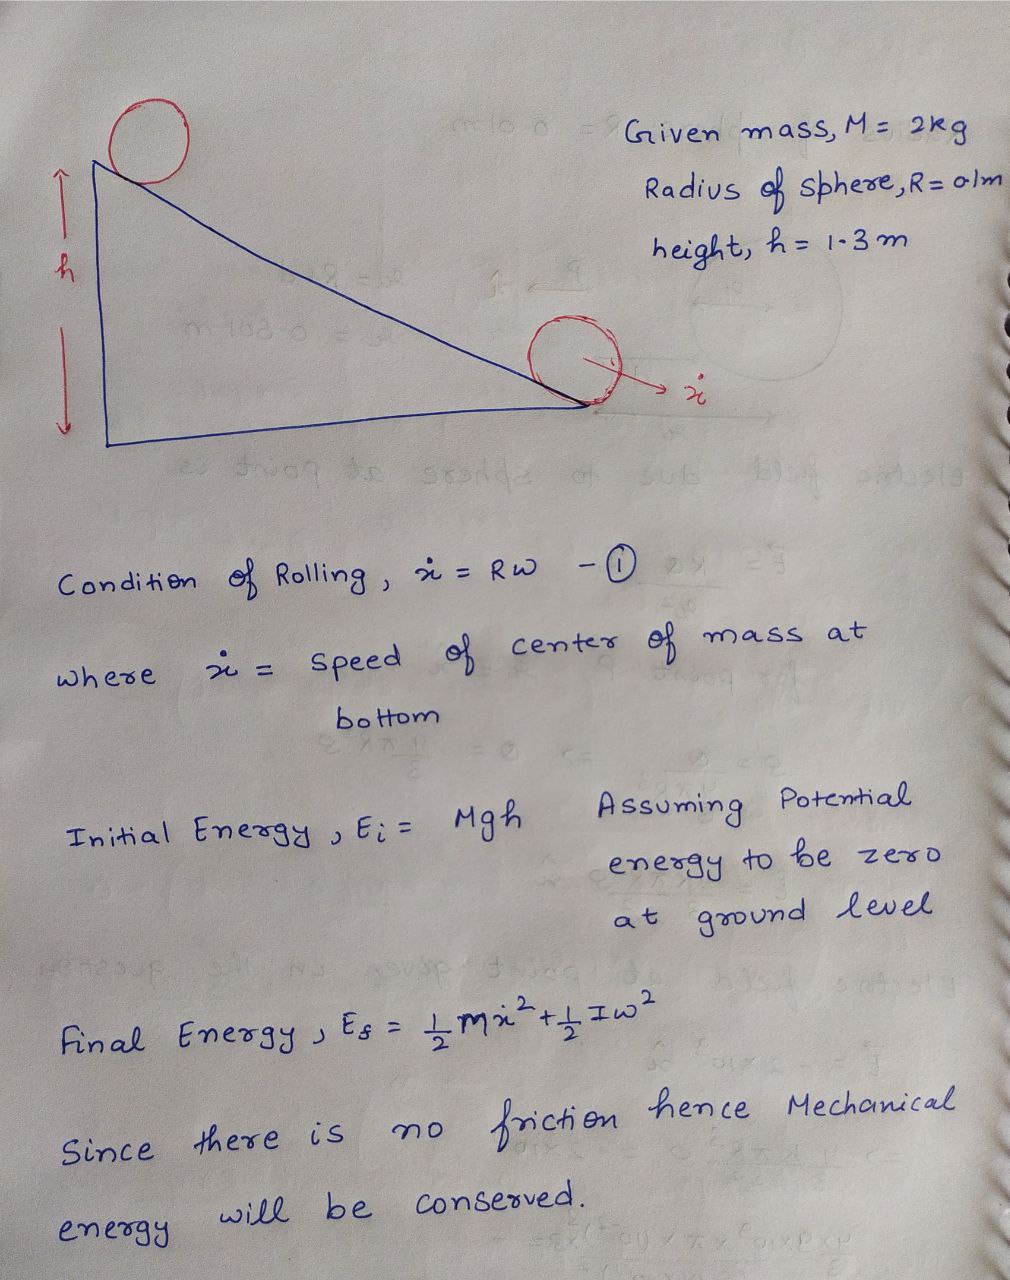 Given mass, M = 2kg
Radius of sphere, R = 0.1m
height, h = 1.3 m
h
ẋ
Condition of Rolling, ẋ = Rω - ①
where ẋ = speed of center of mass at
bottom
Initial Energy, Ei = Mgh
Assuming Potential
energy to be zero
at ground level
Final Energy, Ef = 1/2 Mẋ² + 1/2 Iω²
Since there is no friction hence Mechanical
energy will be conserved.